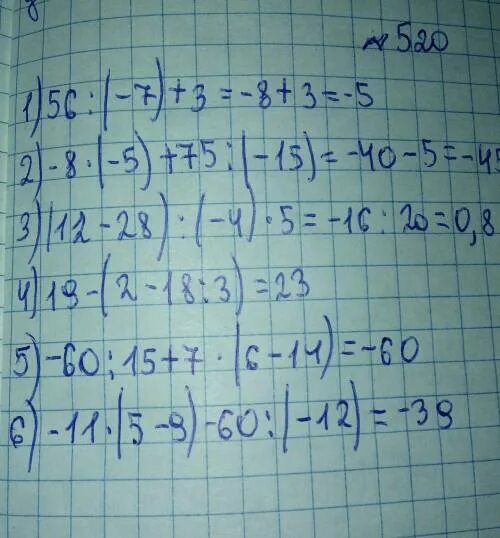 № 520
1) 56 : (-7) + 3 = -8 + 3 = -5
2) -8 · (-5) + 75 : (-15) = -40 - 5 = -45
3) (12 - 28) : (-4) · 5 = -16 : 20 = 0,8
4) 19 - (2 - 18 : 3) = 23
5) -60 : 15 + 7 · (6 - 14) = -60
6) -11 · (5 - 9) - 60 : (-12) = -39